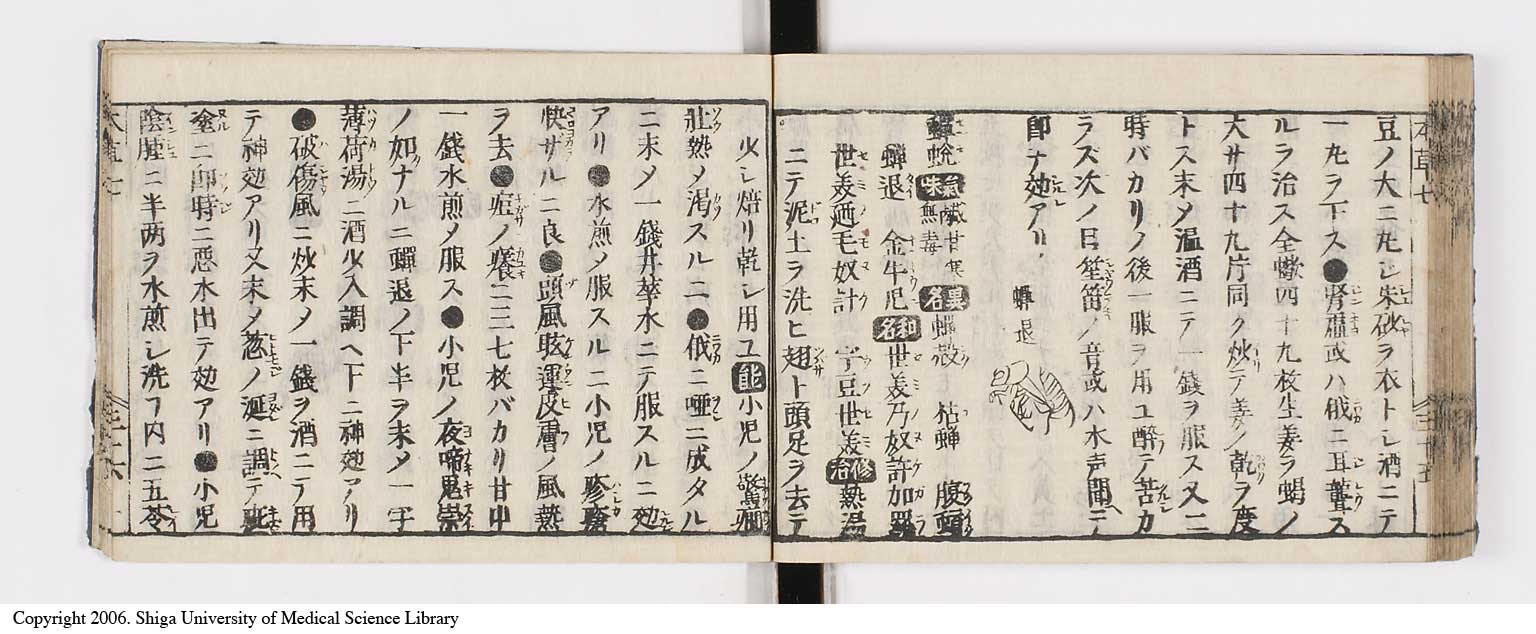 本草七
豆ノ大ニ丸シ朱砂ヲ衣トシ酒ニテ
一丸ヲ下ス●腎虚或ハ俄ニ耳聾ス
ルヲ治ス全蠍四十九枚生姜ヲ蝎ノ
大サ四十九片同ク炒テ姜ノ乾ヲ度
トス末メ温酒ニテ一錢ヲ服ス又二
時バカリノ後一服ヲ用ユ醉テ苦カ
ラズ次ノ日笙笛ノ音或ハ水声聞テ
即チ効アリ
蝉退
蝉蛻 氣味 鹹甘寒無毒 異名 蝉殻 枯蝉 腹蜟
蝉退 金牛児 和名 世美乃奴計加羅
世美廼毛奴計 宇豆世美 修治 熱湯
ニテ泥土ヲ洗ヒ翅ト頭足ヲ去テ
少シ焙リ乾シ用ユ 能 小児ノ驚癇
壯熱メ渇スルニ●俄ニ啞ニ成タル
ニ末メ一錢井華水ニテ服スルニ効
アリ●水煎メ服スルニ小児ノ疹瘡
快サルニ良●頭風眩運皮膚ノ風熱
ヲ去●痘ノ癢ニ三七枚バカリ甘中
一錢水煎メ服ス●小児ノ夜啼鬼祟
ノ如ナルニ蝉退ノ下半ヲ末メ一字
薄荷湯ニ酒少入調ヘ下ニ神効アリ
●破傷風ニ炒末メ一錢ヲ酒ニテ用
テ神効アリ又末メ葱ノ涎ニ調テ
塗ニ即時ニ悪水出テ効アリ●小児
陰腫ニ半两ヲ水煎シ洗フ内ニ五苓
Copyright 2006. Shiga University of Medical Science Library